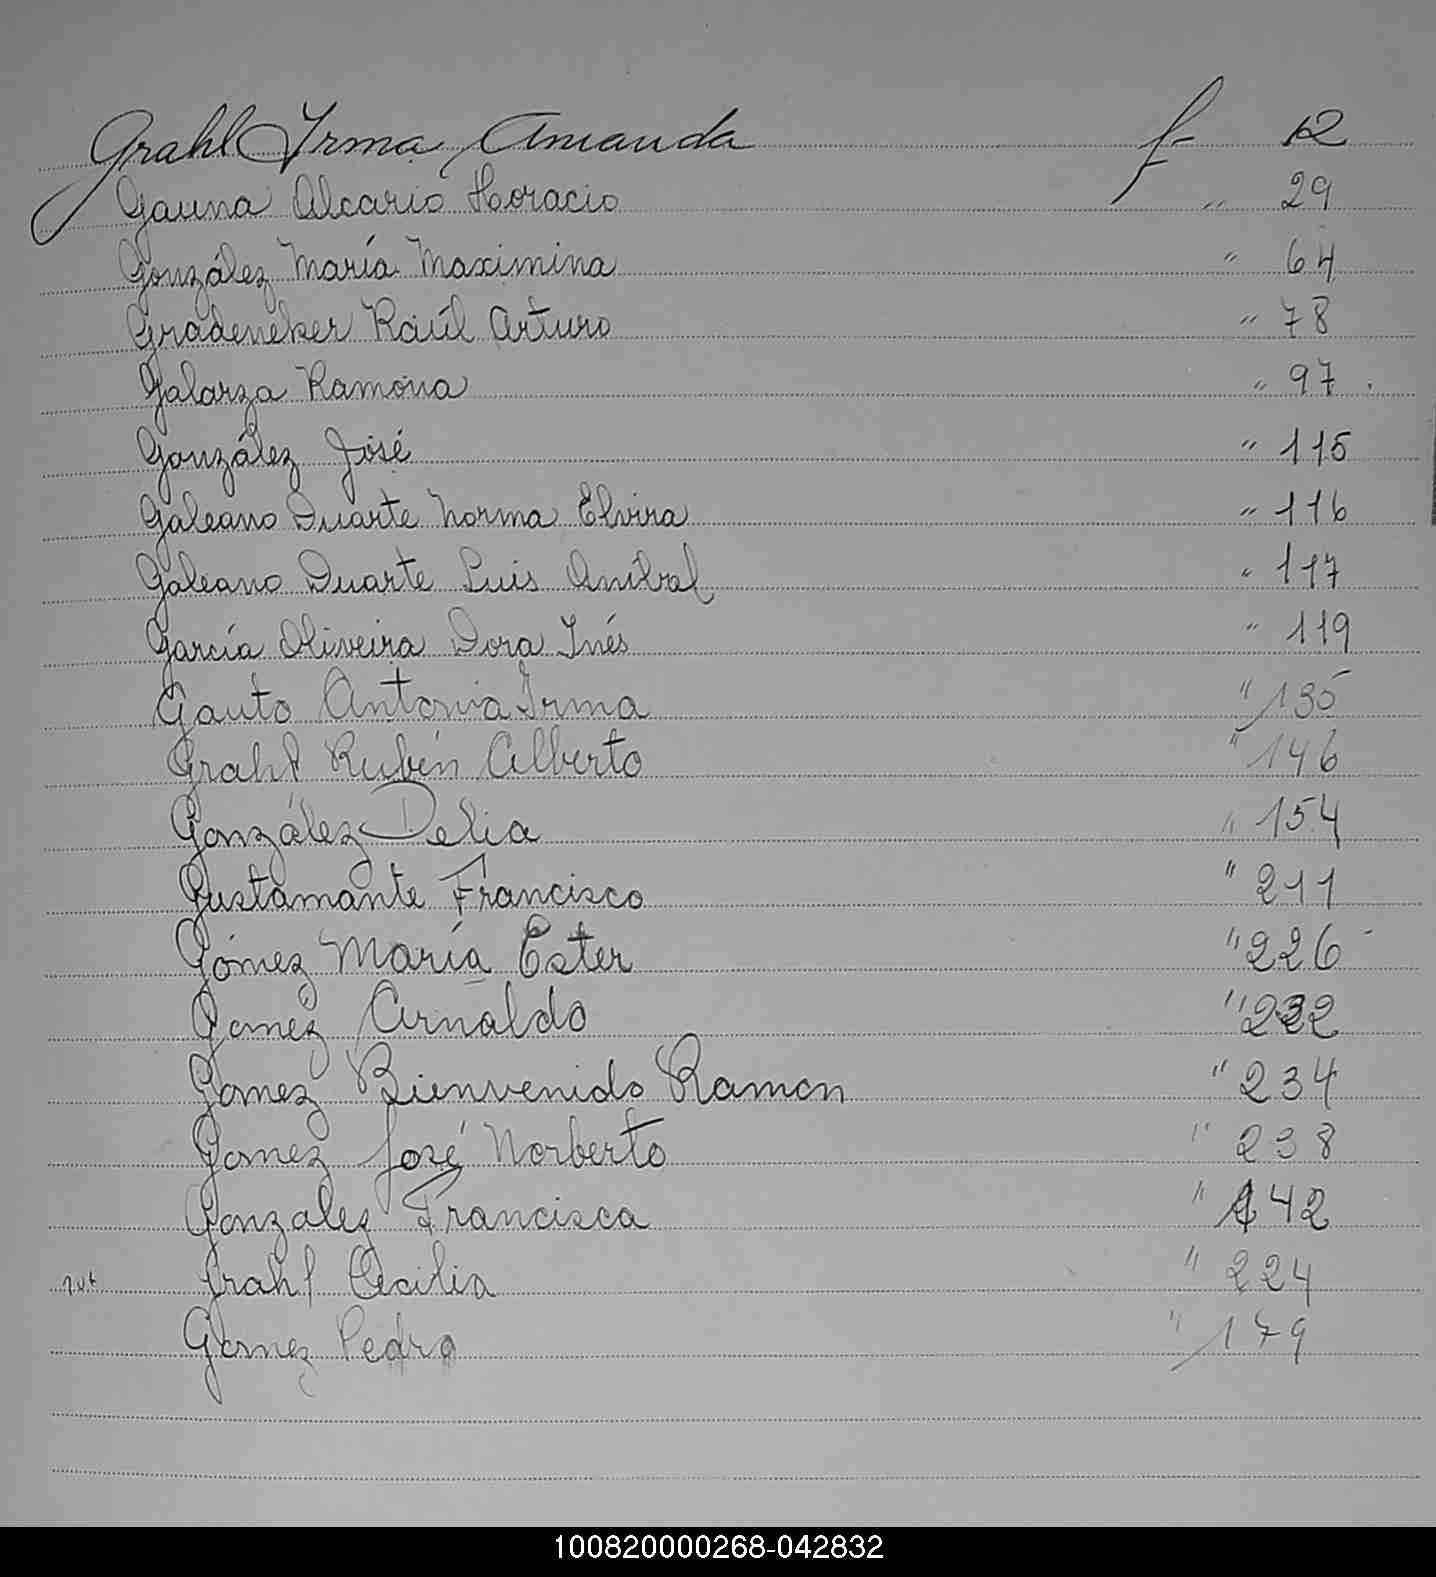 Grahl Irma Amanda f- 12
Gauna Alcario Horacio " 29
González María Maximina " 64
Gradeneker Raúl Arturo " 78
Galarza Ramona " 97
González José " 115
Galeano Duarte Norma Elvira " 116
Galeano Duarte Luis Anibal " 117
García Oliveira Dora Inés " 119
Gauto Antonia Irma " 135
Grahl Rubén Alberto " 146
González Delia " 154
Gustamante Francisco " 211
Gómez María Ester " 226
Gomez Arnaldo " 232
Gomez Bienvenido Ramon " 234
Gomez José Norberto " 238
Gonzalez Francisca " 242
Grahl Cecilia " 224
Gomez Pedro " 179
100820000268-042832